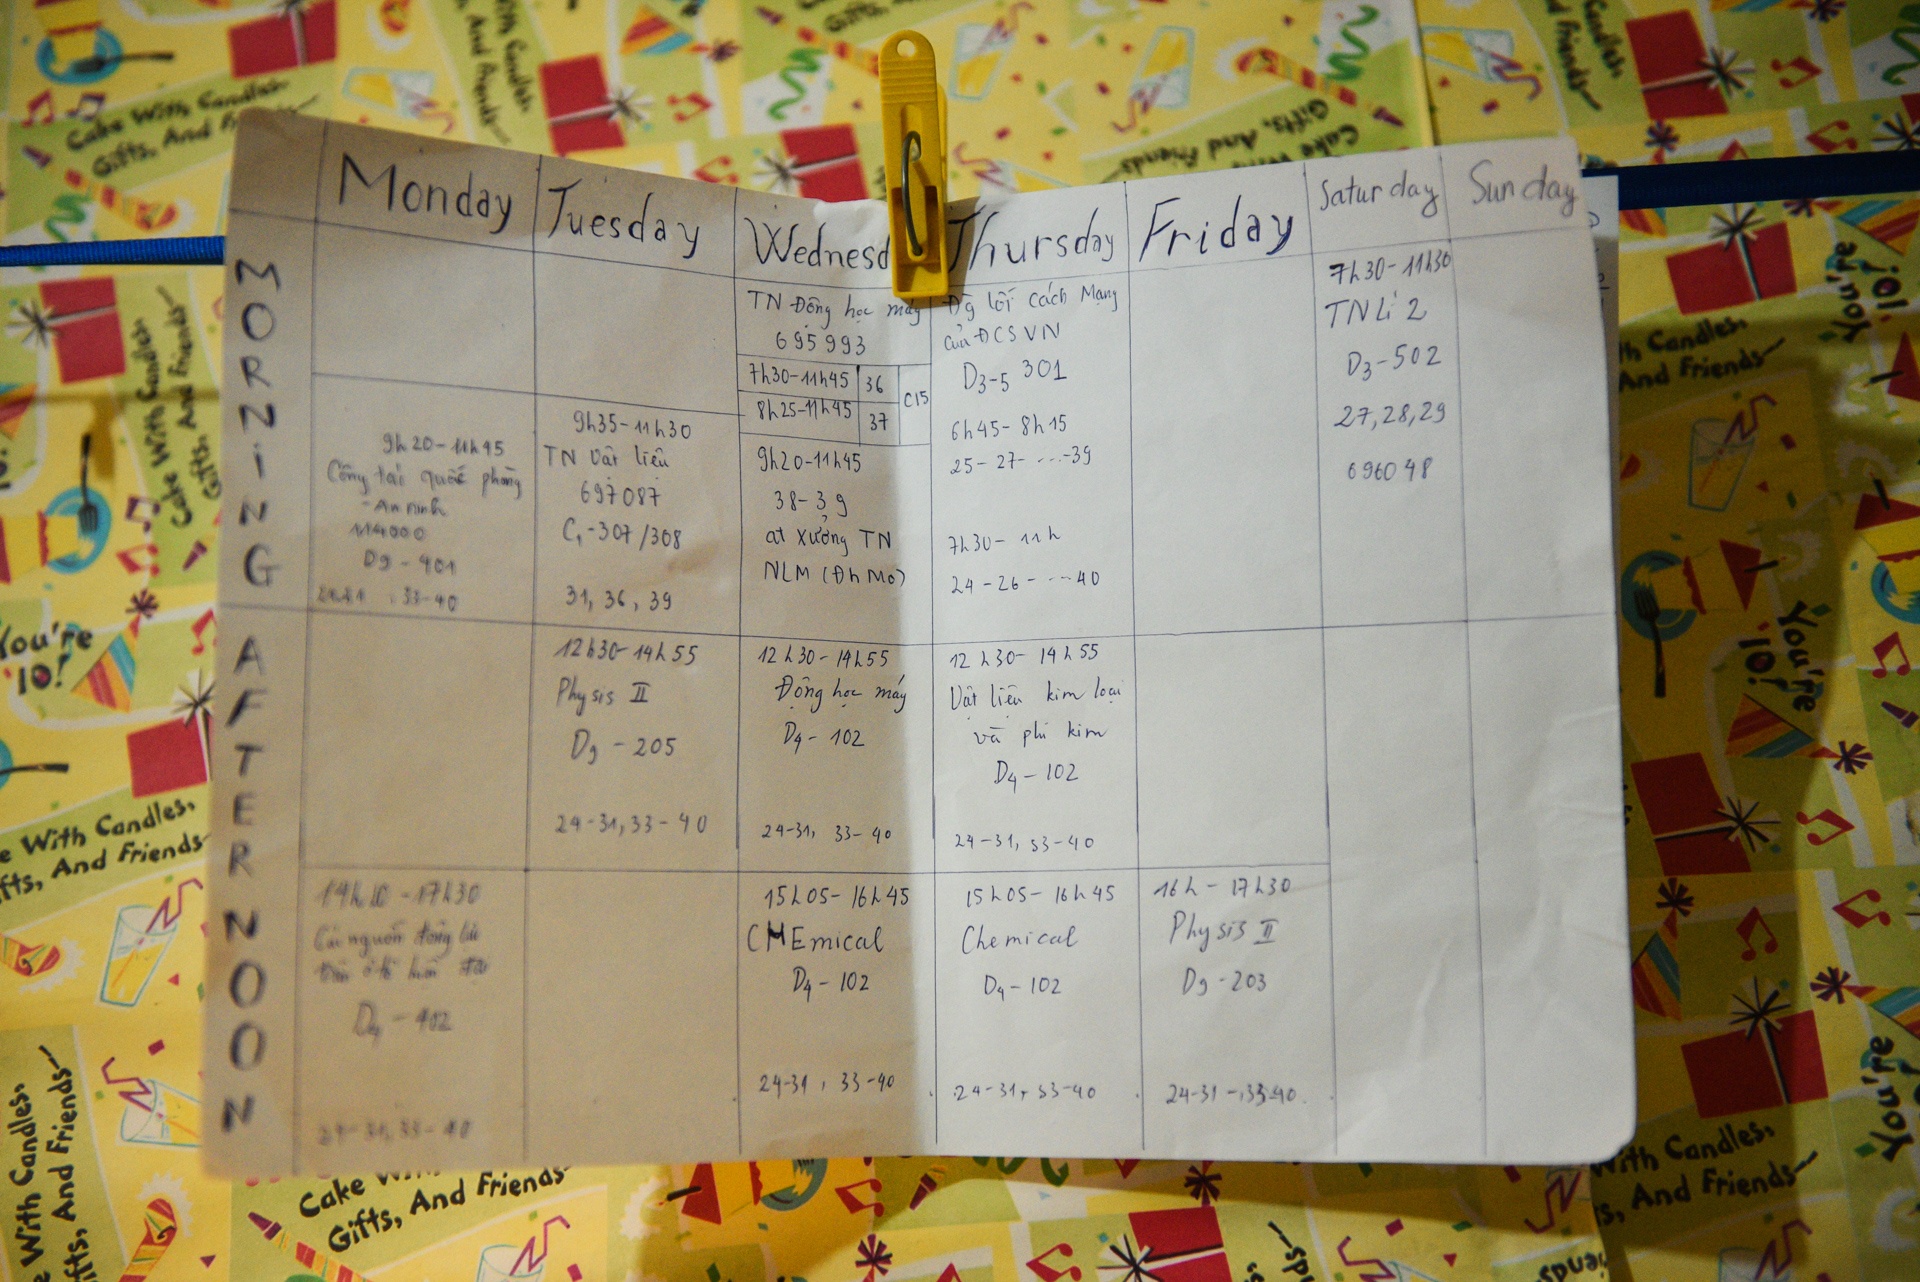 Monday Tuesday Wednesd Thursday Friday Saturday Sunday
MORNING
9h20-11h45
Công tác quốc phòng
-An ninh
114000
D9-401
33-40
9h35-11h30
TN Vật liệu
697087
C1-307/308
31, 36, 39
TN Động học máy
695993
7h30-11h45 36
8h25-11h45 37
C15
9h20-11h45
38-39
at xưởng TN
NLM (Đh Mo)
Đg lối cách Mạng
của ĐCSVN
D3-5 301
6h45-8h15
25-27-...-39
7h30-11h
24-26-...-40
7h30-11h30
TN Lí 2
D3-502
27,28,29
696048
AFTERNOON
12h30-14h55
Physis II
D9-205
24-31,33-40
12h30-14h55
Động học máy
D4-102
24-31, 33-40
12h30-14h55
Vật liệu kim loại
và phi kim
D4-102
24-31, 33-40
14h10-17h30
D4-402
24-31,33-40
15h05-16h45
CHEmical
D4-102
24-31, 33-40
15h05-16h45
Chemical
D4-102
24-31, 33-40
16h-17h30
Physis II
D9-203
24-31-33-40
Cake With Candles,
Gifts, And Friends
You're
10!